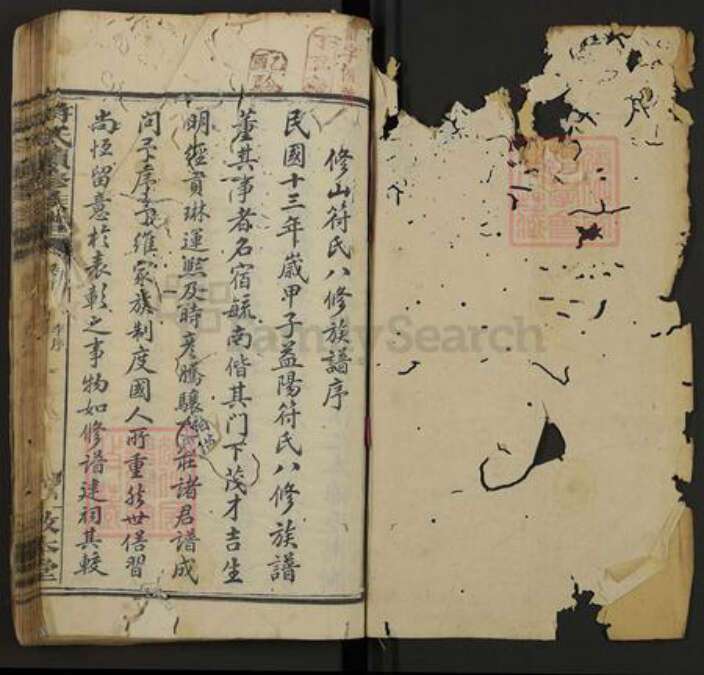 修山符氏八修族譜序
民國十三年歲甲子益陽符氏八修族譜
董其事者名宿毓南偕其門下茂才吉生
明經貢琳運熙及時彥騰驤莊諸君譜成
問予序予維家族制度國人所重於世俗習
尚恒留意於表彰之事物如修譜建祠其較
符氏
族譜
序
敦本堂
FamilySearch